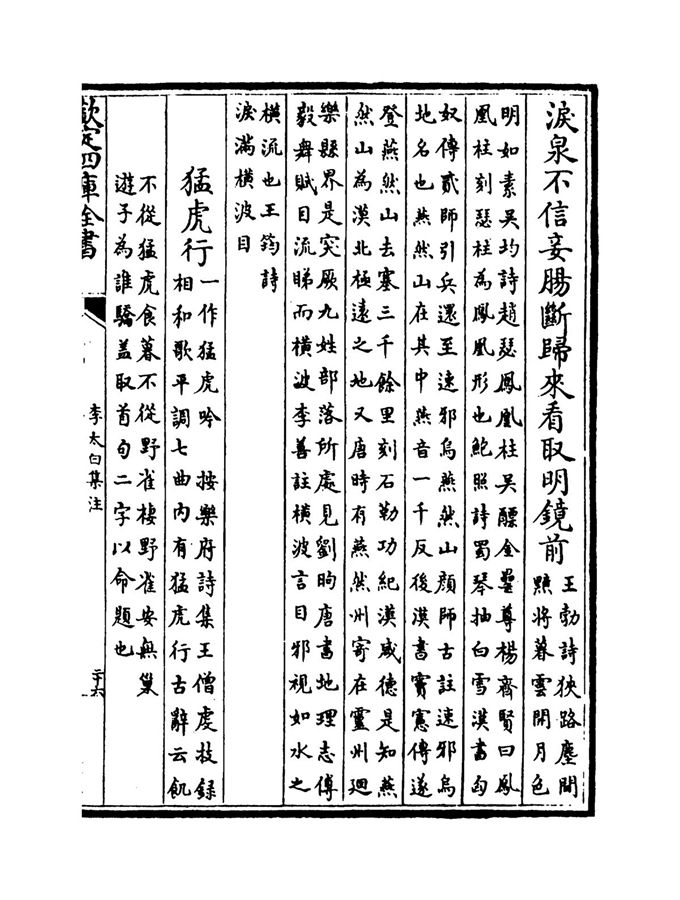 淚泉不信妾腸斷歸來看取明鏡前
王勃詩狹路塵間
黯將暮雲開月色
明如素吳均詩趙瑟鳳凰柱吳醥金罍尊楊齊賢曰鳳
凰柱刻瑟柱為鳳凰形也鮑照詩蜀琴抽白雪漢書匈
奴傳貳師引兵還至速邪烏燕然山顔師古註速邪烏
地名也燕然山在其中燕音一千反後漢書竇憲傳遂
登燕然山去塞三千餘里刻石勒功紀漢威德是知燕
然山為漠北極遠之地又唐時有燕然州寄在靈州廻
樂縣界是突厥九姓部落所處見劉昫唐書地理志傅
毅舞賦目流睇而橫波李善註橫波言目邪視如水之
橫流也王筠詩
淚滿橫波目
猛虎行
一作猛虎吟 按樂府詩集王僧虔技録
相和歌平調七曲内有猛虎行古辭云飢
不從猛虎食暮不從野雀棲野雀安無巢
遊子為誰驕盖取首句二字以命題也
欽定四庫全書
李太白集注
二十六